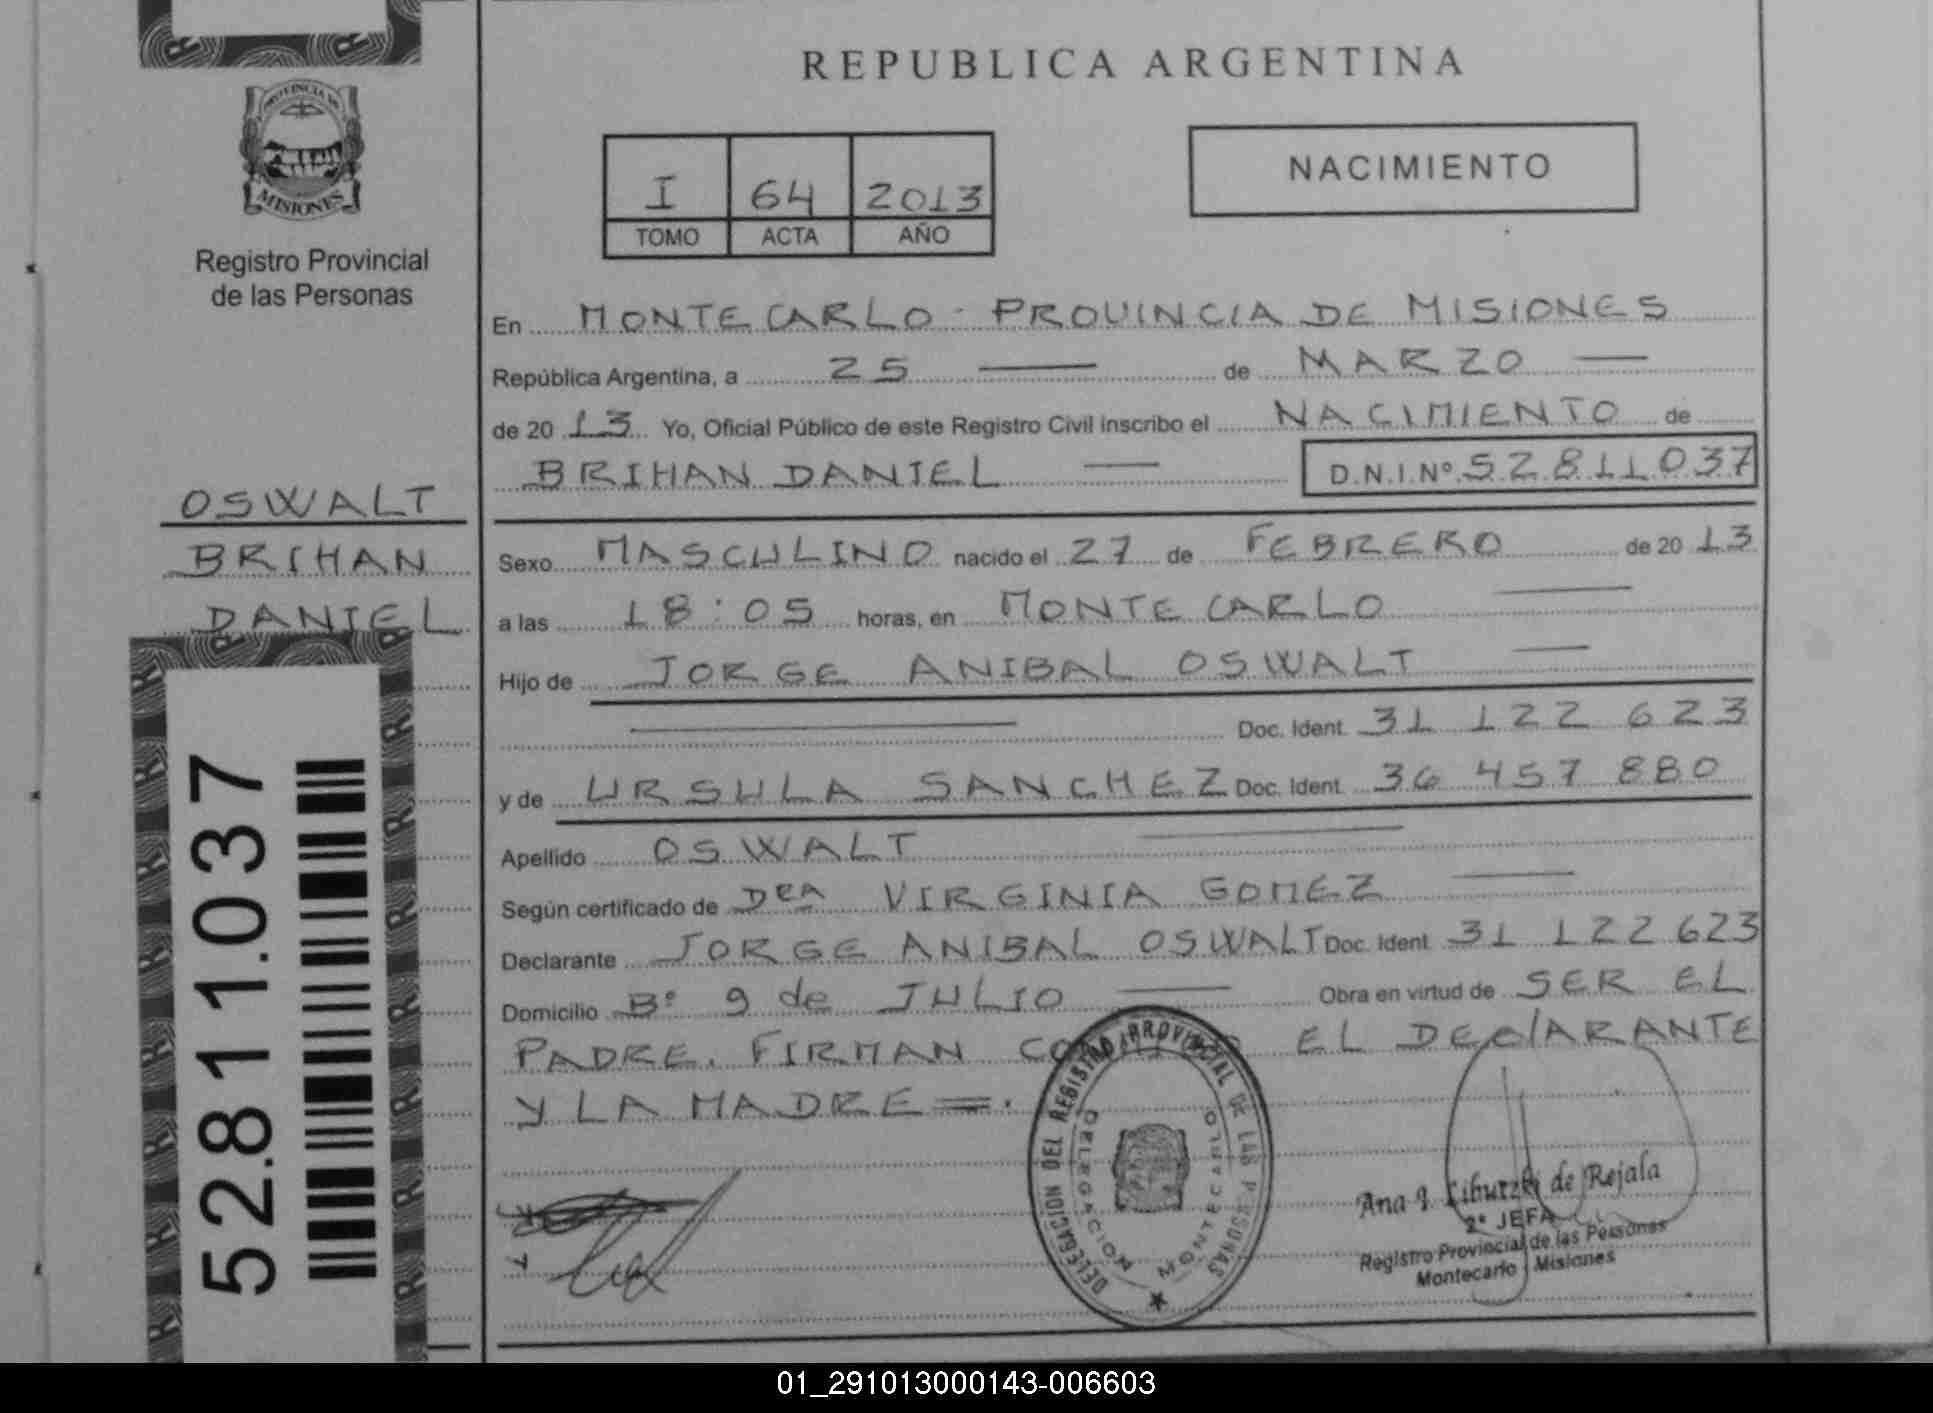 REPUBLICA ARGENTINA
PROVINCIA DE
MISIONES
Registro Provincial
de las Personas
I 64 2013
TOMO ACTA AÑO
NACIMIENTO
En MONTECARLO - PROVINCIA DE MISIONES
República Argentina, a 25 de MARZO
de 20 13 Yo, Oficial Público de este Registro Civil inscribo el NACIMIENTO de
BRIHAN DANIEL D.N.I.Nº 52811037
OSWALT
BRIHAN
DANIEL
52.811.037
Sexo MASCULINO nacido el 27 de FEBRERO de 20 13
a las 18:05 horas, en MONTECARLO
Hijo de JORGE ANIBAL OSWALT
Doc. Ident. 31 122 623
y de URSULA SANCHEZ Doc. Ident. 36 457 880
Apellido OSWALT
Según certificado de Dra VIRGINIA GOMEZ
Declarante JORGE ANIBAL OSWALT Doc. Ident. 31 122 623
Domicilio Bº 9 de JULIO Obra en virtud de SER EL
PADRE. FIRMAN EL DEClARANTE
Y LA MADRE =.
DELEGACION DEL REGISTRO PROVINCIAL DE LAS PERSONAS
DELEGACION MONTECARLO
Ana J. de Rejala
2º JEFA
Registro Provincial de las Personas
Montecarlo Misiones
01_291013000143-006603